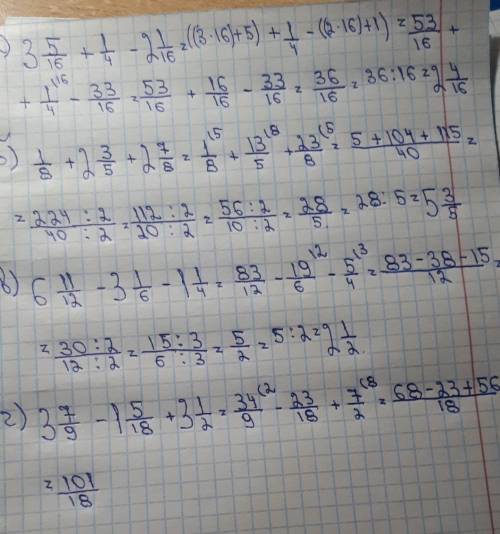 ) 3 5/16 + 1/4 - 2 1/16 = ((3·16)+5) + 1/4 - ((2·16)+1) = 53/16 +
+ 1/4 (16 - 33/16 = 53/16 + 16/16 - 33/16 = 36/16 = 36:16 = 2 4/16
б) 1/8 + 2 3/5 + 2 7/8 = 1/8 (5 + 13/5 (8 + 23/8 (5 = (5+104+115)/40 =
= (224:2)/(40:2) = (112:2)/(20:2) = (56:2)/(10:2) = 28/5 = 28:5 = 5 3/5
в) 6 11/12 - 3 1/6 - 1 1/4 = 83/12 - 19/6 (2 - 5/4 (3 = (83-38-15)/12 =
= (30:2)/(12:2) = (15:3)/(6:3) = 5/2 = 5:2 = 2 1/2
г) 3 7/9 - 1 5/18 + 3 1/2 = 34/9 (2 - 23/18 + 7/2 (8 = (68-23+56)/18
= 101/18